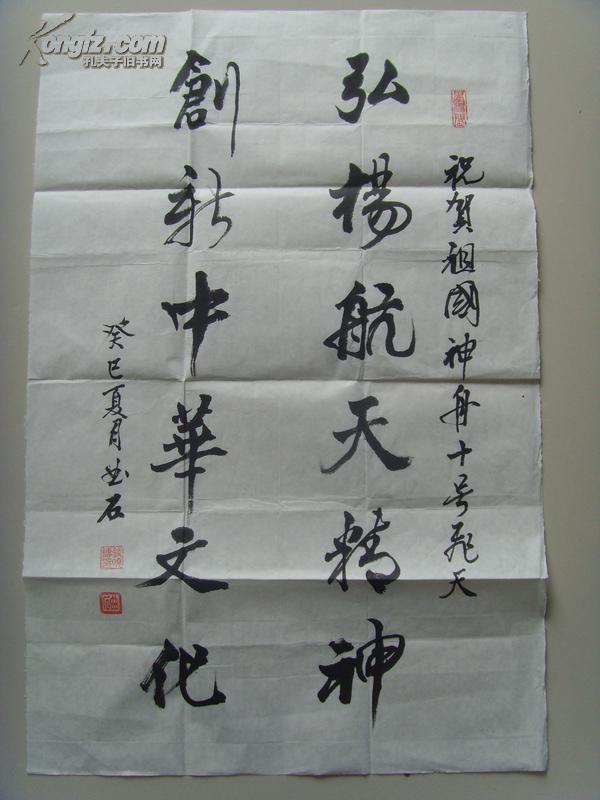 祝賀祖國神舟十号飛天
弘楊航天精神
創新中華文化
癸巳夏月 石
Kongfz.com
孔夫子旧书网